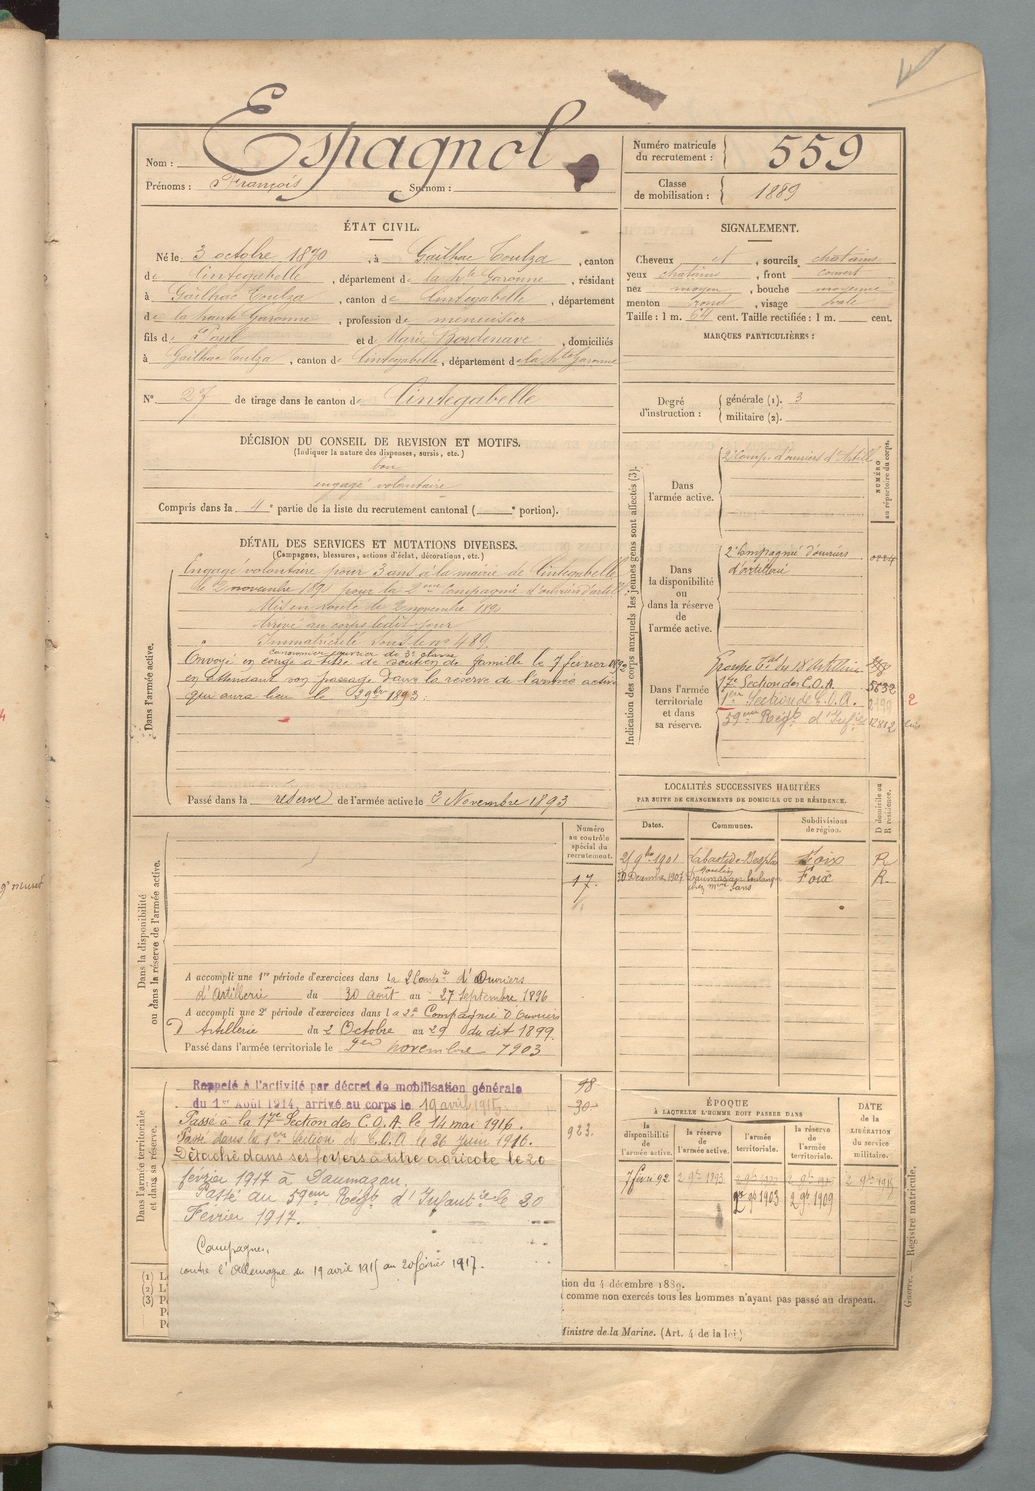 Nom : Espagnol
Prénoms : François Surnom :
Numéro matricule du recrutement : 559
Classe de mobilisation : 1889
ÉTAT CIVIL.
Né le 3 octobre 1870, à Gailhac Toulza, canton
de Cintegabelle, département de la hte Garonne, résidant
à Gailhac Toulza, canton de Cintegabelle, département
de la haute Garonne, profession de menuisier
fils de Paul et de Marie Bordenave, domiciliés
à Gailhac Toulza, canton de Cintegabelle, département de la hte Garonne
N° 27 de tirage dans le canton de Cintegabelle
SIGNALEMENT.
Cheveux et, sourcils chatains
yeux chatains, front couvert
nez moyen, bouche moyenne
menton rond, visage ovale
Taille : 1 m. 64 cent. Taille rectifiée : 1 m. cent.
MARQUES PARTICULIÈRES :
Degré d'instruction : générale (1). 3
militaire (2).
DÉCISION DU CONSEIL DE REVISION ET MOTIFS.
(Indiquer la nature des dispenses, sursis, etc.)
bon
engagé volontaire
Compris dans la 4e partie de la liste du recrutement cantonal ( e portion).
DÉTAIL DES SERVICES ET MUTATIONS DIVERSES.
(Campagnes, blessures, actions d'éclat, décorations, etc.)
Dans l'armée active.
Engagé volontaire pour 3 ans à la mairie de Cintegabelle
le 2 novembre 1890 pour la 2eme Compagnie d'ouvriers d'artill
Mis en route le 2 novembre 189
Arrivé au corps ledit jour
Immatriculé sous le n° 489.
canonnier ouvrier de 3e classe
Envoyé en congé à titre de soutien de famille le 7 février 1892
en attendant son passage dans la réserve de l'armée active
qui aura lieu le 2 9bre 1893.
Passé dans la réserve de l'armée active le 3 Novembre 1893
Indication des corps auxquels les jeunes gens sont affectés (3).
NUMÉRO au répertoire du corps.
Dans l'armée active.
2e Comp. d'ouvriers d'Artill
Dans la disponibilité ou dans la réserve de l'armée active.
2e Compagnie d'ouvriers
d'artillerie
Dans l'armée territoriale et dans sa réserve.
Groupe Trial du 18 Artillerie
17e Section des C.O.A. 5632
1ère Section de C.O.A.
59eme Regt d'Infie
LOCALITÉS SUCCESSIVES HABITÉES
PAR SUITE DE CHANGEMENTS DE DOMICILE OU DE RÉSIDENCE.
Dates. Communes. Subdivisions de région. D domicile ou R résidence.
9bre 1901 Labastide-Besplas Foix R
30 Décembre 1907 Daumazan boulanger Foix R.
chez Mme Sans
Dans la disponibilité ou dans la réserve de l'armée active.
Numéro au contrôle spécial du recrutement.
17.
A accompli une 1re période d'exercices dans la 2 Compie d'Ouvriers
d'Artillerie du 30 août au 27 Septembre 1896
A accompli une 2e période d'exercices dans la 2e Compagnie D'Ouvriers
D'Artillerie du 2 Octobre au 29 du dit 1899.
Passé dans l'armée territoriale le novembre 1903
Dans l'armée territoriale et dans sa réserve.
Rappelé à l'activité par décret de mobilisation générale
du 1er Août 1914, arrivé au corps le 19 avril 1915.
Passé à la 17e Section des C.O.A. le 14 mai 1916.
Passé dans la 1ère section de C.O.A le 26 Juin 1916.
Détaché dans ses foyers à titre agricole le 20
février 1917 à Daumazan.
Passé au 59eme Regt d'Infantie le 20
Février 1917.
Campagnes.
contre l'Allemagne du 19 avril 1915 au 20 février 1917.
98
30
923.
ÉPOQUE
À LAQUELLE L'HOMME DOIT PASSER DANS
la disponibilité de l'armée active. la réserve de l'armée active. l'armée territoriale. la réserve de l'armée territoriale.
DATE de la LIBÉRATION du service militaire.
7 févri 92 2 9bre 1893
2 9b 1903 2 9b 1909
(1) L
(2) L'
(3) P
tion du 4 décembre 1889.
comme non exercés tous les hommes n'ayant pas passé au drapeau.
Ministre de la Marine. (Art. 4 de la loi)
Guerre. — Registre matricule.